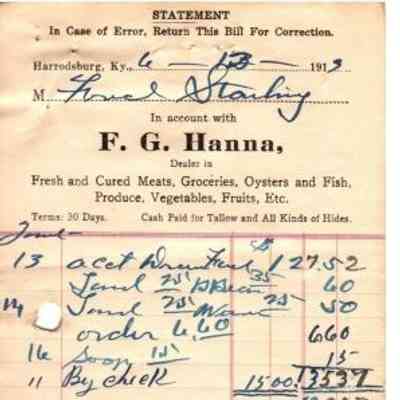 STATEMENT
In Case of Error, Return This Bill For Correction.
Harrodsburg, Ky., 6 — 13 — 1913
M Starling
In account with
F. G. Hanna,
Dealer in
Fresh and Cured Meats, Groceries, Oysters and Fish,
Produce, Vegetables, Fruits, Etc.
Terms: 30 Days. Cash Paid for Tallow and All Kinds of Hides.
13 acct 127.52
25 35 60
14 25 25 50
order 6.60 6 60
16 Soap 15 15
11 By check 15 00 135 37